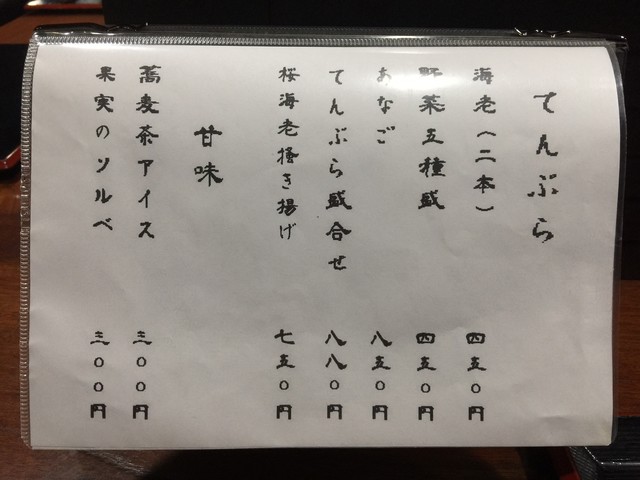 てんぷら
海老(二本) 四五〇円
野菜五種盛 四五〇円
あなご 八五〇円
てんぷら盛合せ 八八〇円
桜海老掻き揚げ 七五〇円
甘味
蕎麦茶アイス 三〇〇円
果実のソルベ 三〇〇円